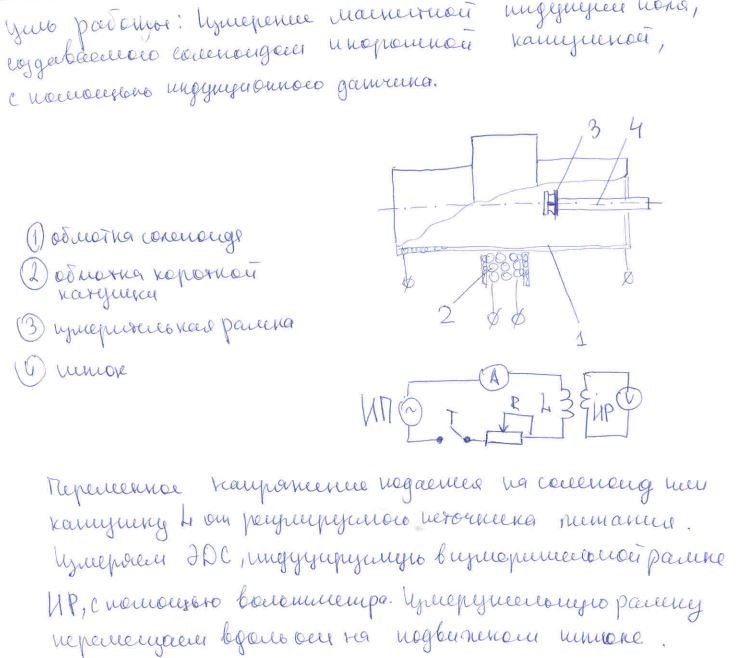 Цель работы: Измерение магнитной индукции поля,
создаваемого соленоидом и короткой катушкой,
с помощью индукционного датчика.
3 4
1 обмотка соленоида
2 обмотка короткой
катушки
3 измерительная рамка
4 шток
2 1
ИП ~ А Т R L ИР V
Переменное напряжение подается на соленоид или
катушку L от регулируемого источника питания.
Измеряем ЭДС, индуцируемую в измерительной рамке
ИР, с помощью вольтметра. Измерительную рамку
перемещаем вдоль оси на подвижном штоке.